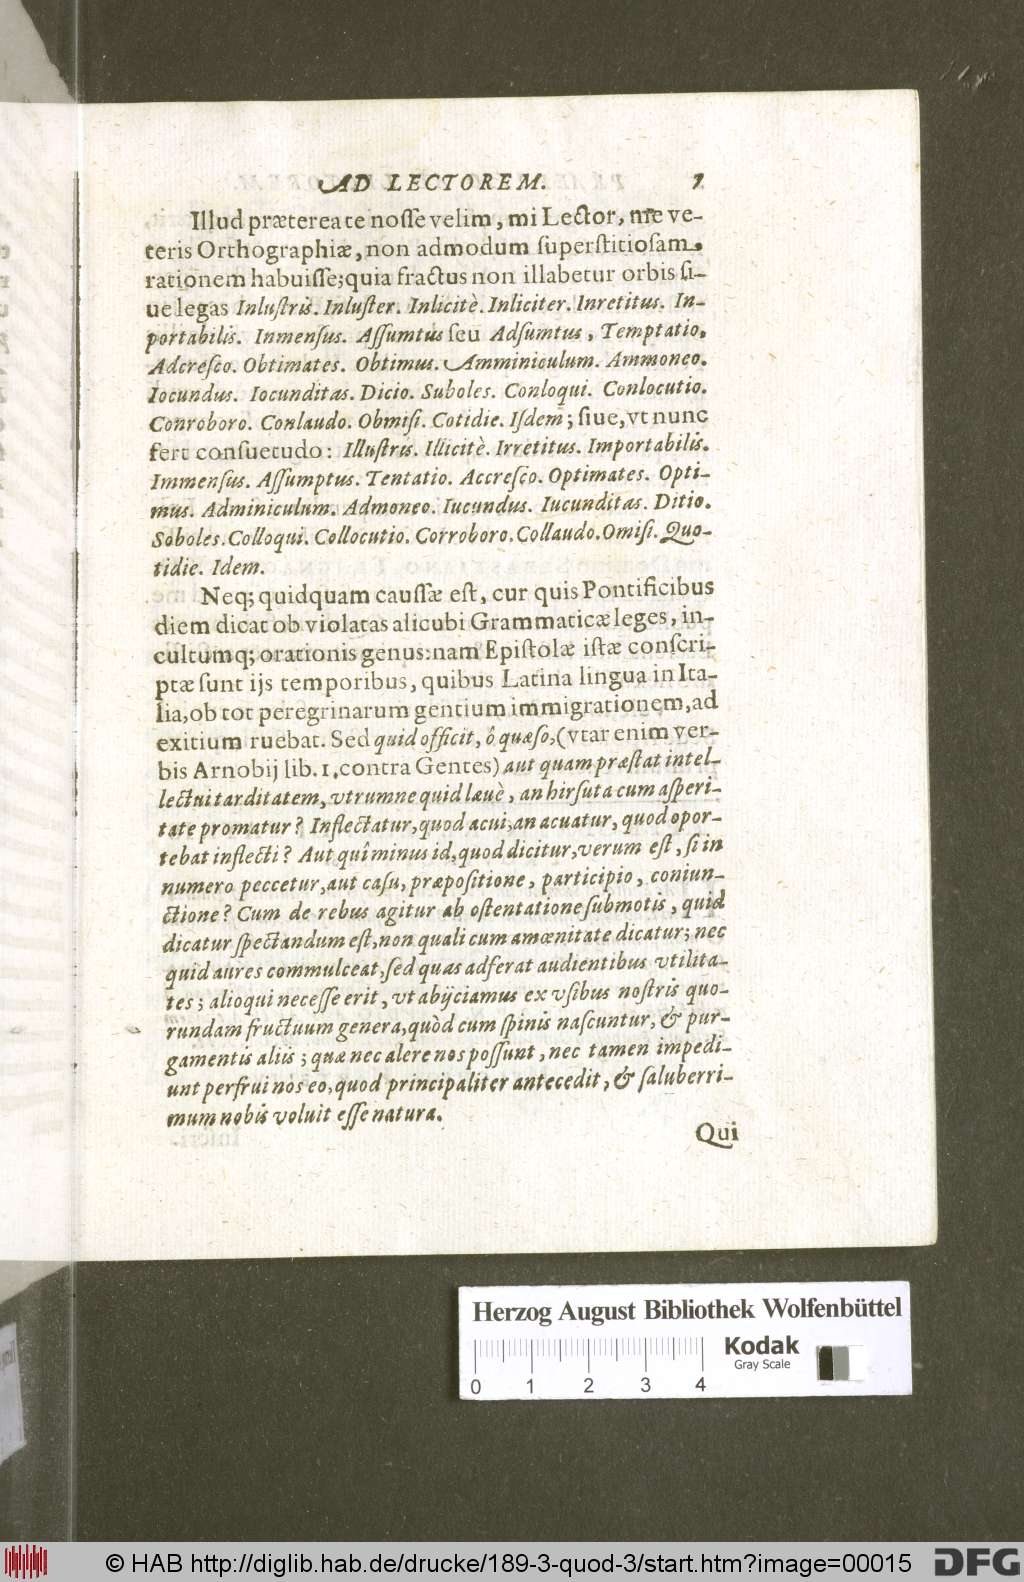 AD LECTOREM. 7
Illud præterea te nosse velim, mi Lector, me ve-
teris Orthographiæ, non admodum superstitiosam
rationem habuisse; quia fractus non illabetur orbis si-
ue legas Inlustris. Inluster. Inlicitè. Inliciter. Inretitus. In-
portabilis. Inmensus. Assumtus seu Adsumtus, Temptatio.
Adcresco. Obtimates. Obtimus. Amminiculum. Ammoneo.
Iocundus. Iocunditas. Dicio. Suboles. Conloqui. Conlocutio.
Conroboro. Conlaudo. Obmisi. Cotidie. Isdem; siue, vt nunc
fert consuetudo: Illustris. Illicitè. Irretitus. Importabilis.
Immensus. Assumptus. Tentatio. Accresco. Optimates. Opti-
mus. Adminiculum. Admoneo. Iucundus. Iucunditas. Ditio.
Soboles. Colloqui. Collocutio. Corroboro. Collaudo. Omisi. Quo-
tidie. Idem.
Neq; quidquam caussæ est, cur quis Pontificibus
diem dicat ob violatas alicubi Grammaticæ leges, in-
cultumq; orationis genus: nam Epistolæ istæ conscri-
ptæ sunt ijs temporibus, quibus Latina lingua in Ita-
lia, ob tot peregrinarum gentium immigrationem, ad
exitium ruebat. Sed quid officit, ô quæso, (vtar enim ver-
bis Arnobij lib. 1. contra Gentes) aut quam præstat intel-
lectui tarditatem, vtrumne quid læuè, an hirsuta cum asperi-
tate promatur? Inflectatur, quod acui; an acuatur, quod opor-
tebat inflecti? Aut quî minus id, quod dicitur, verum est, si in
numero peccetur, aut casu, præpositione, participio, coniun-
ctione? Cum de rebus agitur ab ostentatione submotis, quid
dicatur spectandum est, non quali cum amœnitate dicatur; nec
quid aures commulceat, sed quas adferat audientibus vtilita-
tes; alioqui necesse erit, vt abijciamus ex vsibus nostris quo-
rundam fructuum genera, quòd cum spinis nascuntur, & pur-
gamentis aliis; quæ nec alere nos possunt, nec tamen impedi-
unt perfrui nos eo, quod principaliter antecedit, & saluberri-
mum nobis voluit esse natura.
Qui
Herzog August Bibliothek Wolfenbüttel
Kodak
Gray Scale
0 1 2 3 4
© HAB http://diglib.hab.de/drucke/189-3-quod-3/start.htm?image=00015
DFG